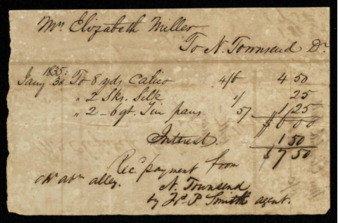 Mrs Elizabeth Miller
To N. Townsend Dr
1835
Jany 30 To 8 yds. Calico 4/6 4 50
" 2 Sks. Silk 1/ 25
" 2 - 6 qt. Tin pans 5/ 1/25
$6.00
Interest 1 50
$7 50
Recd payment from
N. Townsend
by P. Smith agent.